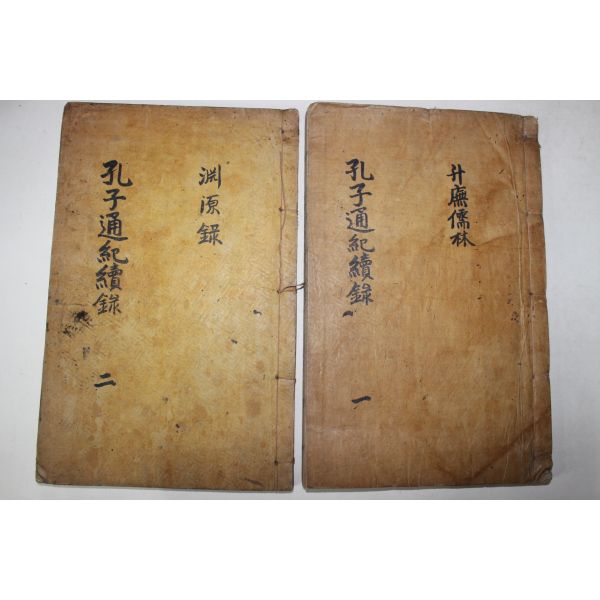 升廡儒林
孔子通紀續錄 一
淵源錄
孔子通紀續錄 二